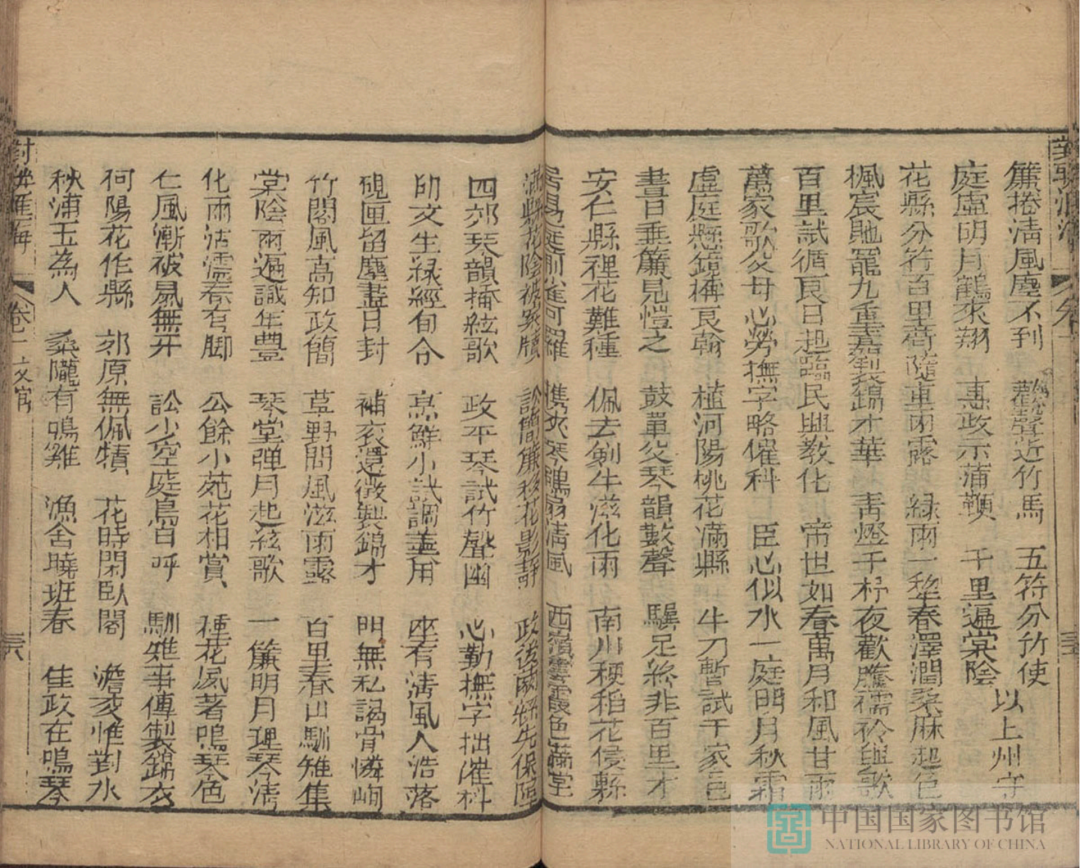 簾捲清風塵不到 歡聲近竹馬 五符分竹使
庭虛明月鶴來翔 惠政示蒲鞭 千里遍棠陰 以上州守
花縣分符百里膏隨車雨露 綠雨一犂春澤潤桑麻起色
楓宸貤寵九重嘉製錦才華 青燈千杼夜歡騰襦袴與歌
百里試循良日起臨民興教化 帝世如春萬月和風甘雨
萬家歌父母心勞撫字略催科 臣心似水一庭明月秋霜
虛庭懸鏡稱良翰 植河陽桃花滿縣 牛刀暫試千家邑
晝日垂簾見愷之 鼓單父琴韻數聲 驥足終非百里才
安仁縣裡花難種 佩去劍牛滋化雨 南川稉稻花侵縣
攜來琴鶴扇清風 西嶺雲霞色滿堂
滿縣花陰 訟簡簾移花影靜 政後繭絲先保障
四郊琴韻捲絃歌 政平琴試竹聲幽 心勤撫字拙催科
印文生綠經旬合 烹鮮小試調羹用 座有清風人浩落
硯匣留塵盡日封 補袞還徵製錦才 門無私謁骨嶙峋
竹閣風高知政簡 草野問風滋雨露 百里春山馴雉集
棠陰雨過識年豐 琴堂彈月起絃歌 一簾明月理琴清
化雨沾濡春有脚 公餘小苑花相賞 種花夙著鳴琴色
仁風漸被夙無牙 訟少空庭鳥自呼 馴雉再傳製錦衣
何陽花作縣 郊原無佩犢 花時閑臥閣 澹交惟對水
秋浦玉為人 桑隴有鳴雉 漁舍曉班春 佳政在鳴琴
卷一文官
中国国家图书馆
NATIONAL LIBRARY OF CHINA